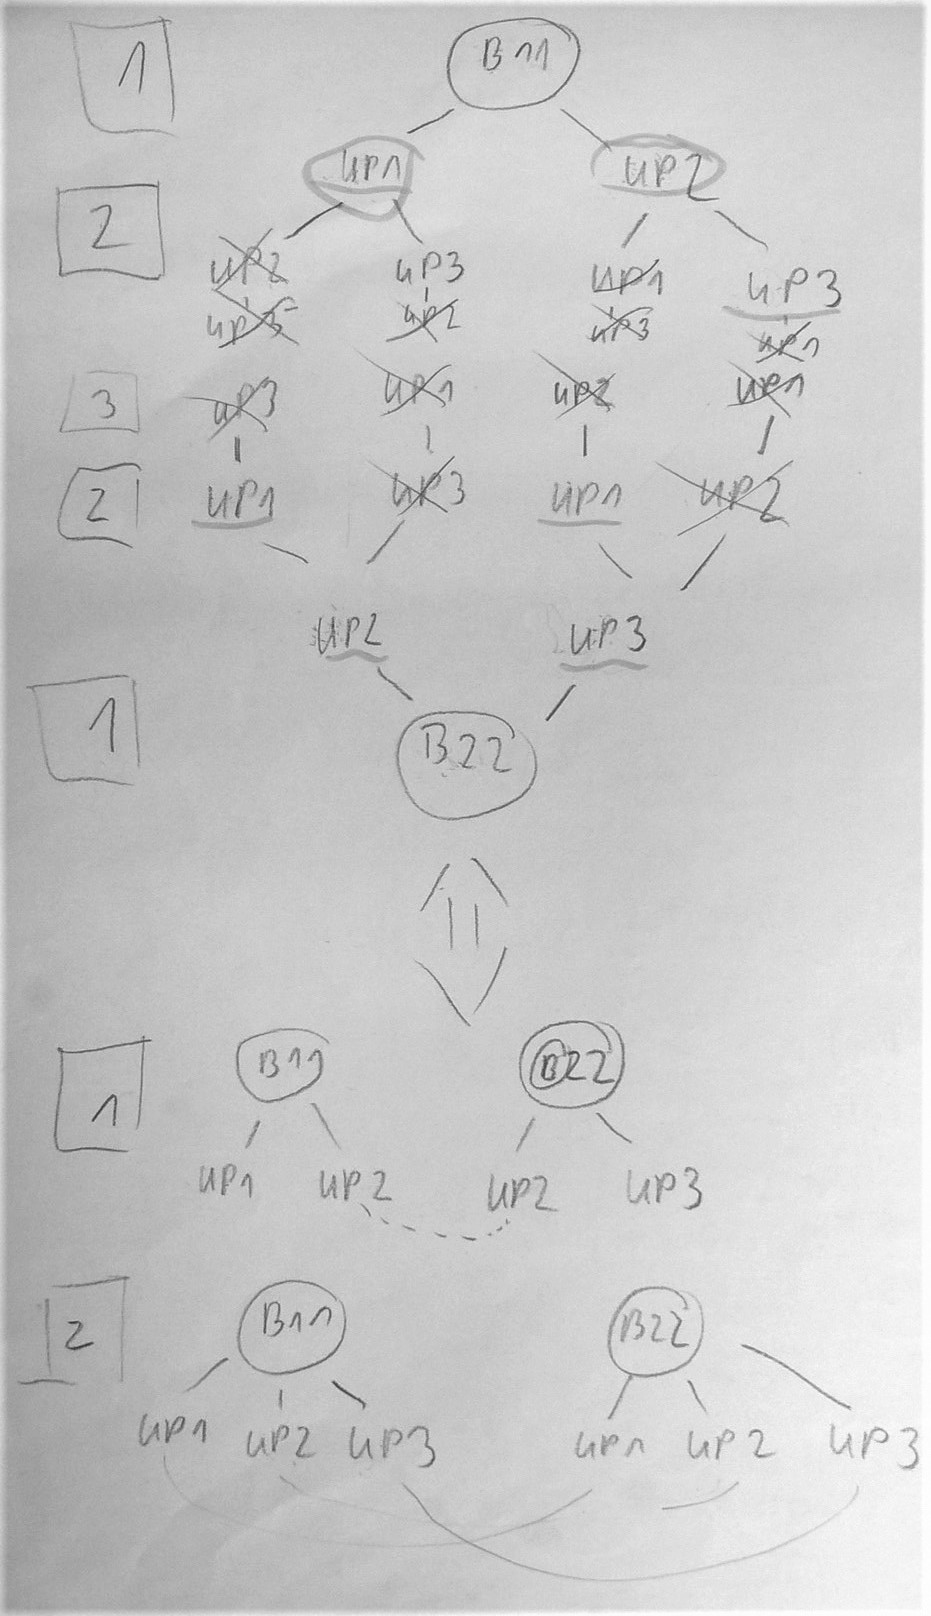 1 B11
UP1 UP2
2
UP2 UP3 UP1 UP3
UP3 UP2 UP3 UP1
3 UP3 UP1 UP2 UP1
2 UP1 UP3 UP1 UP2
UP2 UP3
1 B22
1 B11 B22
UP1 UP2 UP2 UP3
2 B11 B22
UP1 UP2 UP3 UP1 UP2 UP3